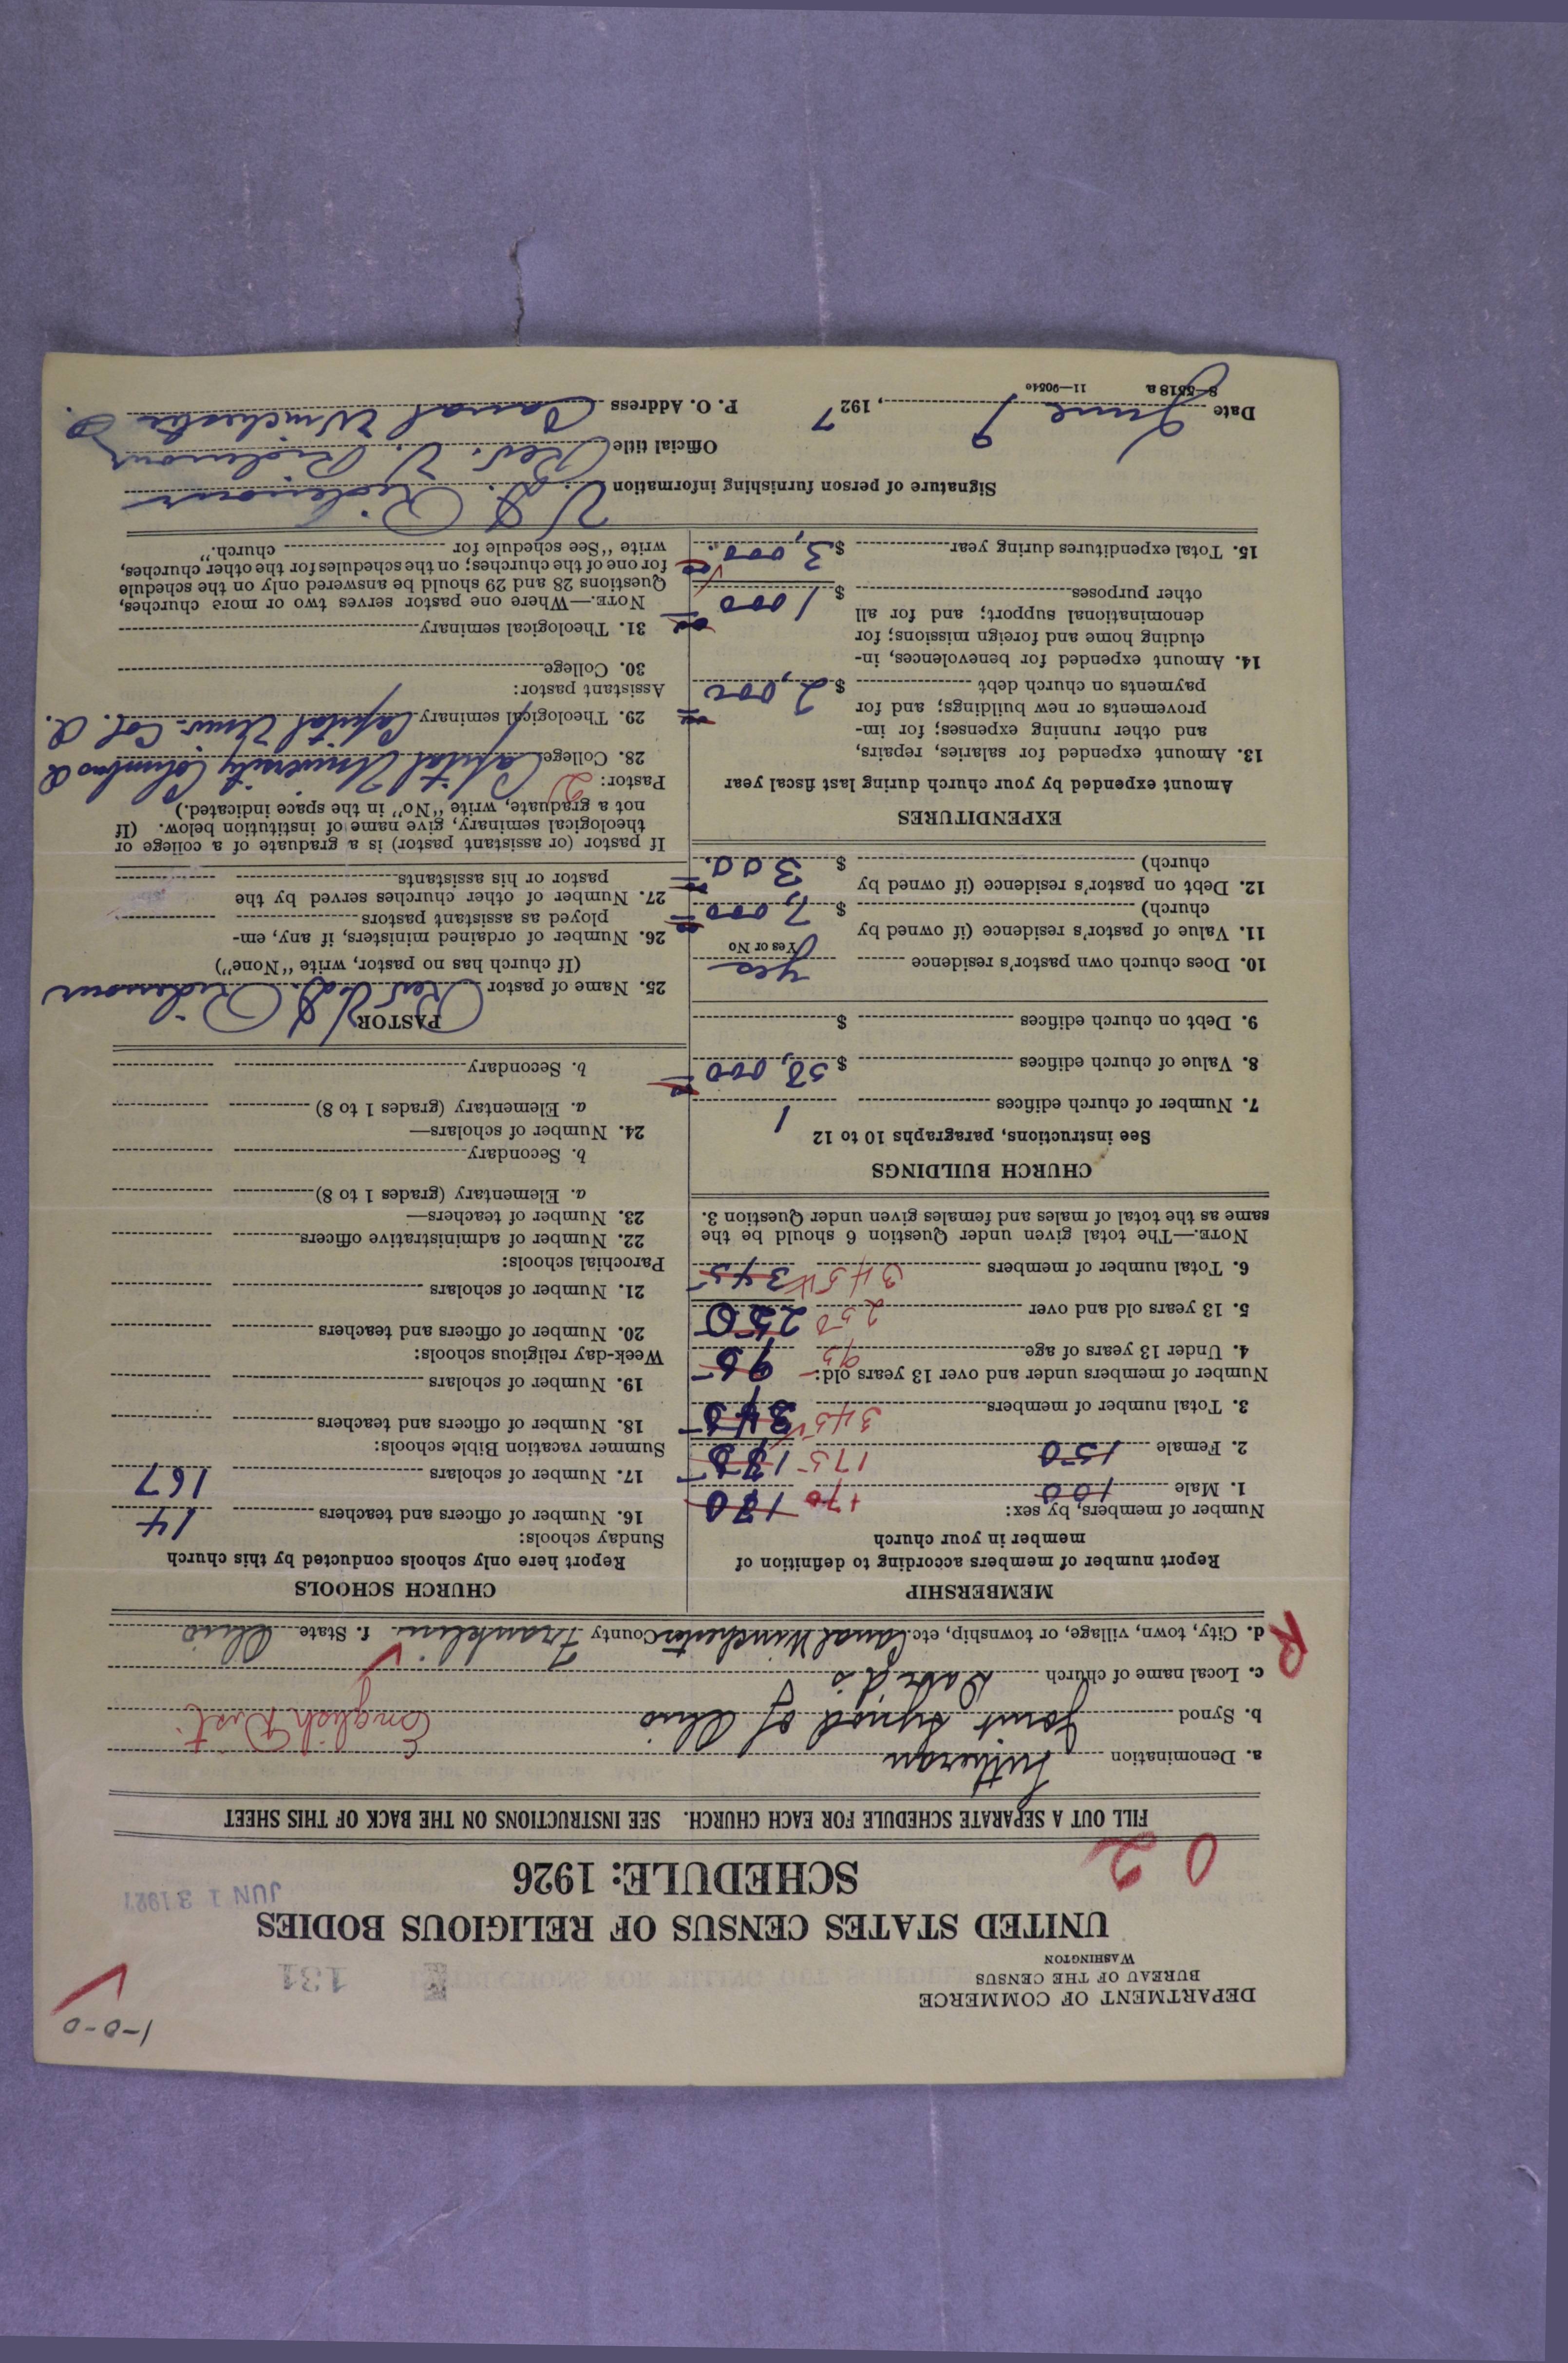 1-0-0
DEPARTMENT OF COMMERCE
BUREAU OF THE CENSUS
WASHINGTON
131
UNITED STATES CENSUS OF RELIGIOUS BODIES
SCHEDULE: 1926
JUN 13 1927
0 2
FILL OUT A SEPARATE SCHEDULE FOR EACH CHURCH. SEE INSTRUCTIONS ON THE BACK OF THIS SHEET
a. Denomination Lutheran
b. Synod Joint Synod of Ohio English Dist.
c. Local name of church David's
R
d. City, town, village, or township, etc. Canal Winchester County Franklin f. State Ohio
MEMBERSHIP
Report number of members according to definition of
member in your church
Number of members, by sex:
1. Male 100 170 180
2. Female 150 175 185
3. Total number of members 345 345
Number of members under and over 13 years old:
4. Under 13 years of age 95 95
5. 13 years old and over 250 250
6. Total number of members 345 345
NOTE.—The total given under Question 6 should be the
same as the total of males and females given under Question 3.
CHURCH BUILDINGS
See instructions, paragraphs 10 to 12
7. Number of church edifices 1
8. Value of church edifices $ 50,000
9. Debt on church edifices $
10. Does church own pastor's residence yes
Yes or No
11. Value of pastor's residence (if owned by
church) $ 7,000
12. Debt on pastor's residence (if owned by
church) $ 300.
EXPENDITURES
Amount expended by your church during last fiscal year
13. Amount expended for salaries, repairs,
and other running expenses; for im-
provements or new buildings; and for
payments on church debt $ 2,000
14. Amount expended for benevolences, in-
cluding home and foreign missions; for
denominational support; and for all
other purposes $ 1000
15. Total expenditures during year $ 3,000
CHURCH SCHOOLS
Report here only schools conducted by this church
Sunday schools:
16. Number of officers and teachers 14
17. Number of scholars 167
Summer vacation Bible schools:
18. Number of officers and teachers
19. Number of scholars
Week-day religious schools:
20. Number of officers and teachers
21. Number of scholars
Parochial schools:
22. Number of administrative officers
23. Number of teachers—
a. Elementary (grades 1 to 8)
b. Secondary
24. Number of scholars—
a. Elementary (grades 1 to 8)
b. Secondary
PASTOR
25. Name of pastor Rev V. D. Ridenour
(If church has no pastor, write "None")
26. Number of ordained ministers, if any, em-
ployed as assistant pastors
27. Number of other churches served by the
pastor or his assistants
If pastor (or assistant pastor) is a graduate of a college or
theological seminary, give name of institution below. (If
not a graduate, write "No" in the space indicated.)
Pastor: 2
28. College Capital University Columbus O
29. Theological seminary Capital Univ. Col. O.
Assistant pastor:
30. College
31. Theological seminary
NOTE.—Where one pastor serves two or more churches,
Questions 28 and 29 should be answered only on the schedule
for one of the churches; on the schedules for the other churches,
write "See schedule for church."
Signature of person furnishing information V. D. Ridenour
Official title Rev. V. Ridenour
Date June 9, 1927 P. O. Address Canal Winchester O.
8—5518a 11—9054c